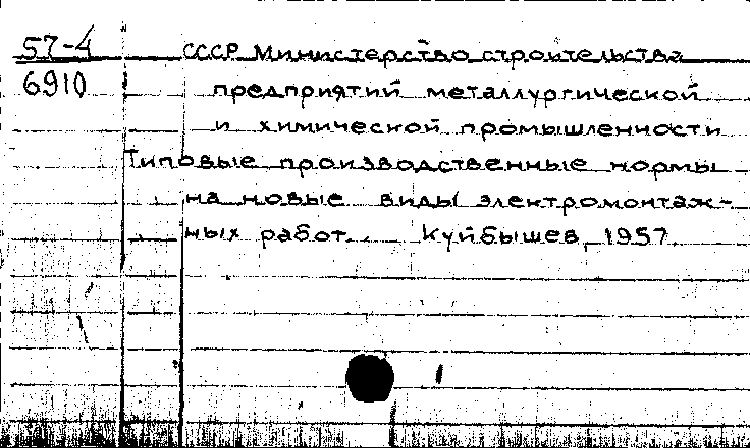 57-4 СССР Министерство строительства
6910 предприятий металлургической
и химической промышленности
Типовые производственные нормы
на новые виды электромонтаж-
ных работ. Куйбышев, 1957.